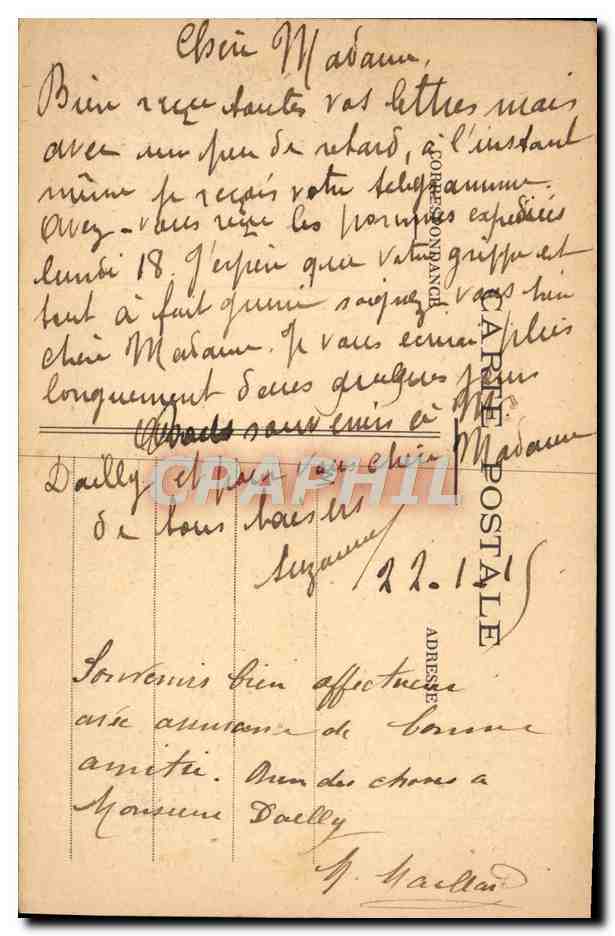 Chère Madame,
Bien reçu toutes vos lettres mais
avec un peu de retard, à l'instant
même je reçois votre telegramme.
Avez-vous reçu les pommes expediées
lundi 18. J'espère que votre grippe est
tout à fait guerie soignez vous bien
chère Madame. Je vous ecrirai plus
longuement dans quelques jours
souvenirs à Mr
Dailly et pour vous chère Madame
de bons baisers
Suzanne
22-1-1
Souvenirs bien affectueux
avec assurance de bonne
amitié. Bien des choses a
Monsieur Dailly
M. Maillard
CORRESPONDANCE
CARTE POSTALE
ADRESSE
CPRAPHIL